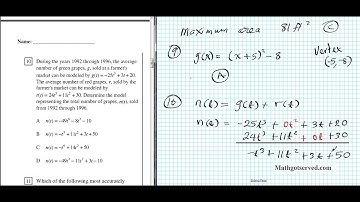 Name:
10 During the years 1992 through 1996, the average
number of green grapes, g, sold at a farmer's
market can be modeled by g(t) = −25t³ + 3t + 20.
The average number of red grapes, r, sold by the
farmer's market can be modeled by
r(t) = 24t³ + 11t² + 30. Determine the model
representing the total number of grapes, n(t), sold
from 1992 through 1996.
A n(t) = −49t³ − 8t² − 10
B n(t) = −t³ + 11t² + 3t + 50
C n(t) = −t³ + 14t² + 50
D n(t) = −49t³ − 11t² + 3t − 10
11 Which of the following most accurately
Maximum area 81 ft² C
9 g(x) = (x+5)² − 8 Vertex
(-5,-8)
A
10 n(t) = g(t) + r(t)
n(t) = −25t³ + 0t² + 3t + 20
24t³ + 11t² + 0t + 30
−t³ + 11t² + 3t + 50
Mathgotserved.com